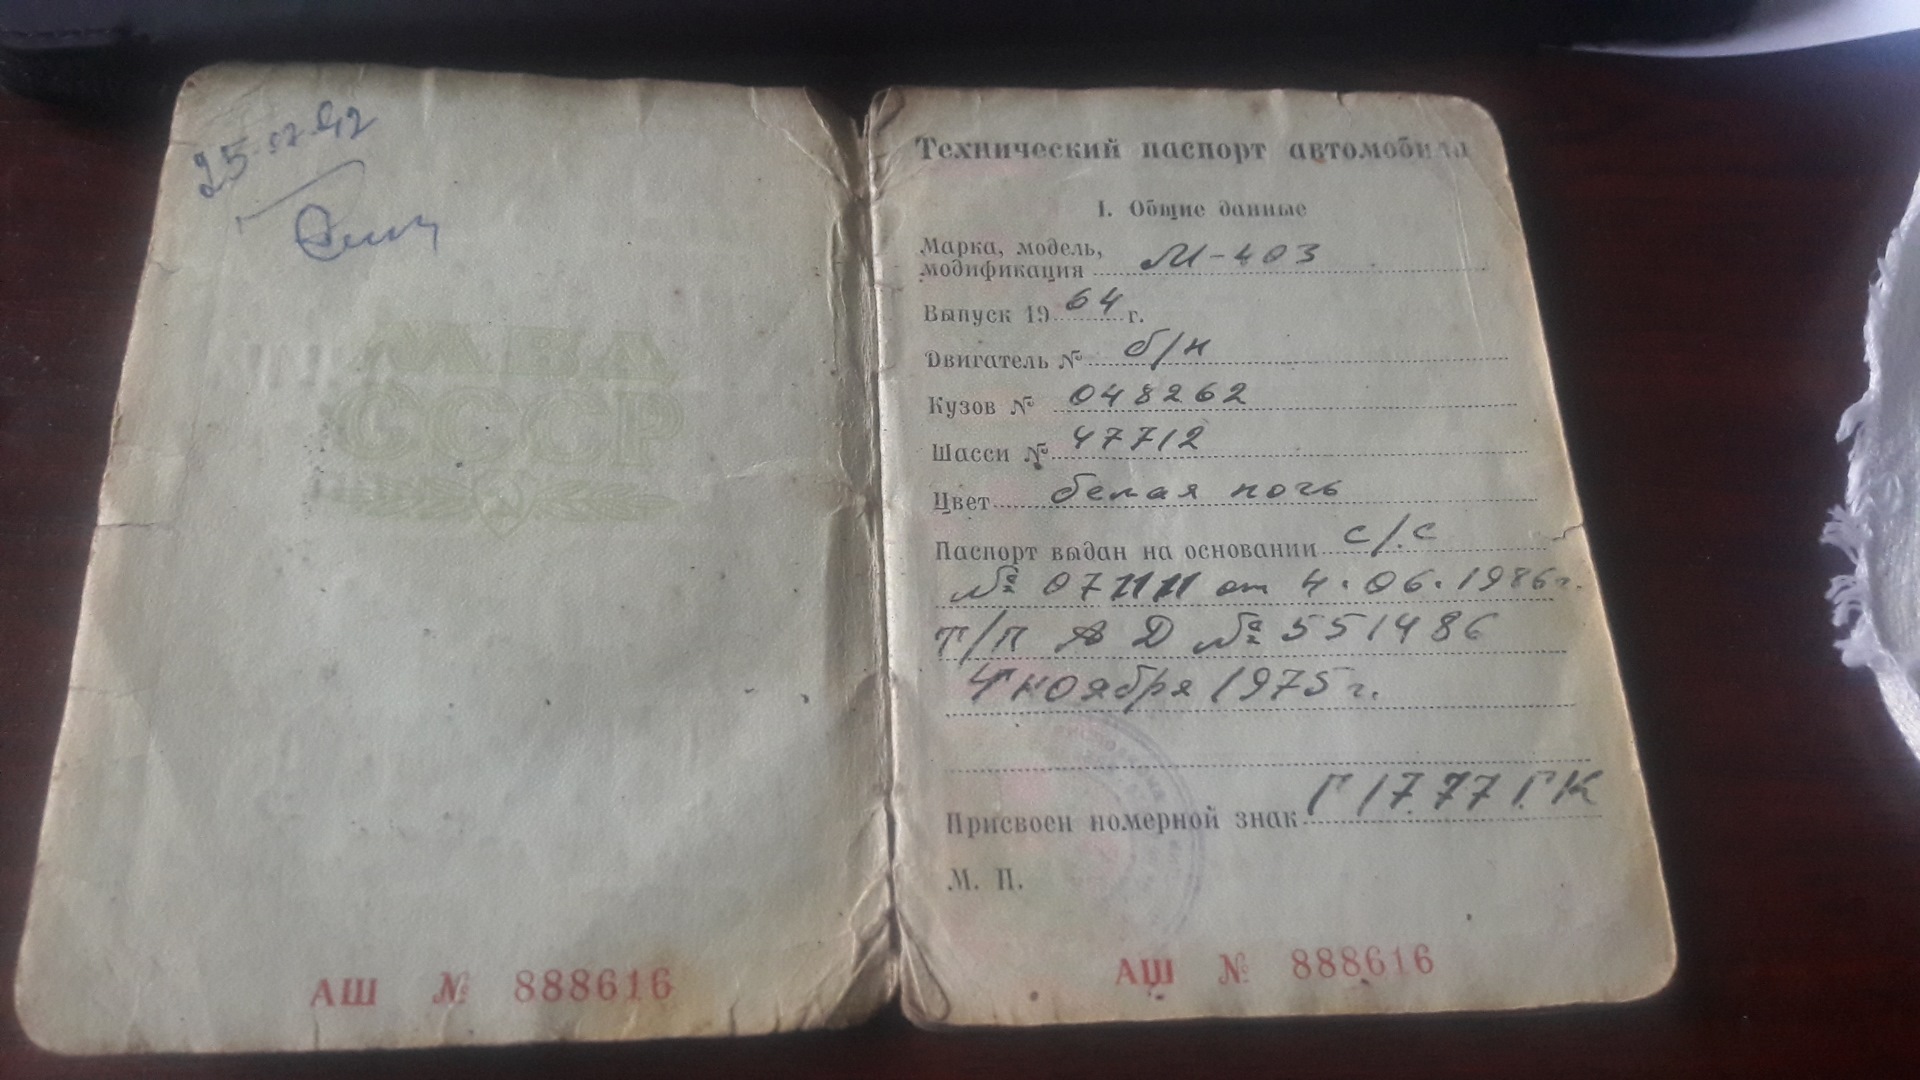 МВД
СССР
АШ № 888616
Технический паспорт автомобиля
I. Общие данные
Марка, модель,
модификация М-403
Выпуск 1964 г.
Двигатель № б/н
Кузов № 048262
Шасси № 47712
Цвет белая ночь
Паспорт выдан на основании с/с
№ от 4.06.1986г.
т/п АД № 551486
4 ноября 1975 г.
Присвоен номерной знак Г 1777 ГК
М. П.
АШ № 888616